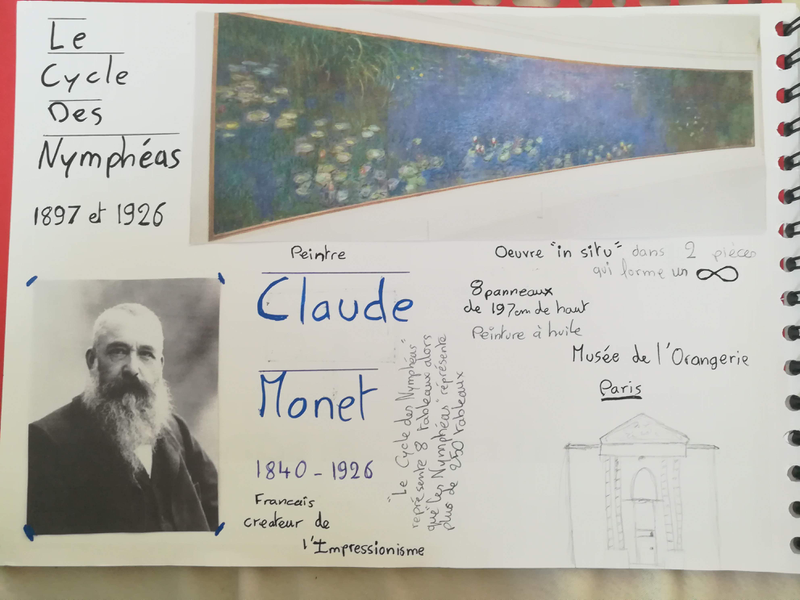 Le
Cycle
Des
Nymphéas
1897 et 1926
Peintre
Claude
Monet
1840 - 1926
Francais
createur de
l'Impressionisme
"Le Cycle des Nymphéas"
représente 8 tableaux alors
que "les Nymphéas" représente
plus de 250 tableaux
Oeuvre "in situ" dans 2 pièces
qui forme un ∞
8 panneaux
de 197cm de haut
Peinture à huile
Musée de l'Orangerie
Paris